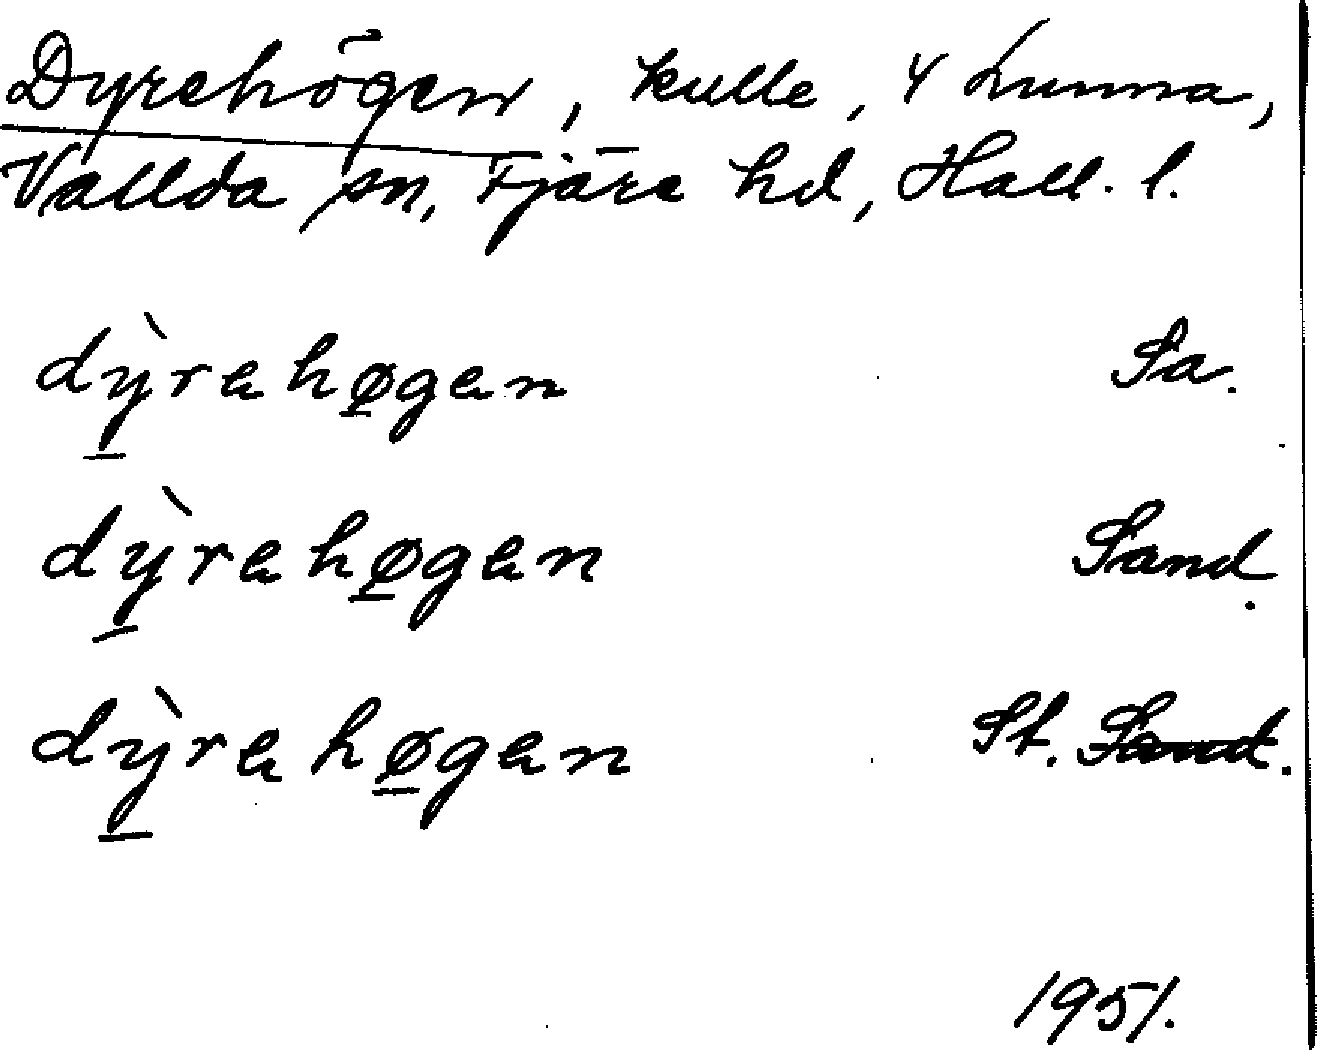 Dyrehögen, kulle, 4 Lunna,
Vallda sn, Fjäre hd, Hall. l.
dỳ̱rehø̱gen Sa.
dỳ̱rehø̱gen Sand.
dỳ̱rehø̱gen St. Sand.
1951.